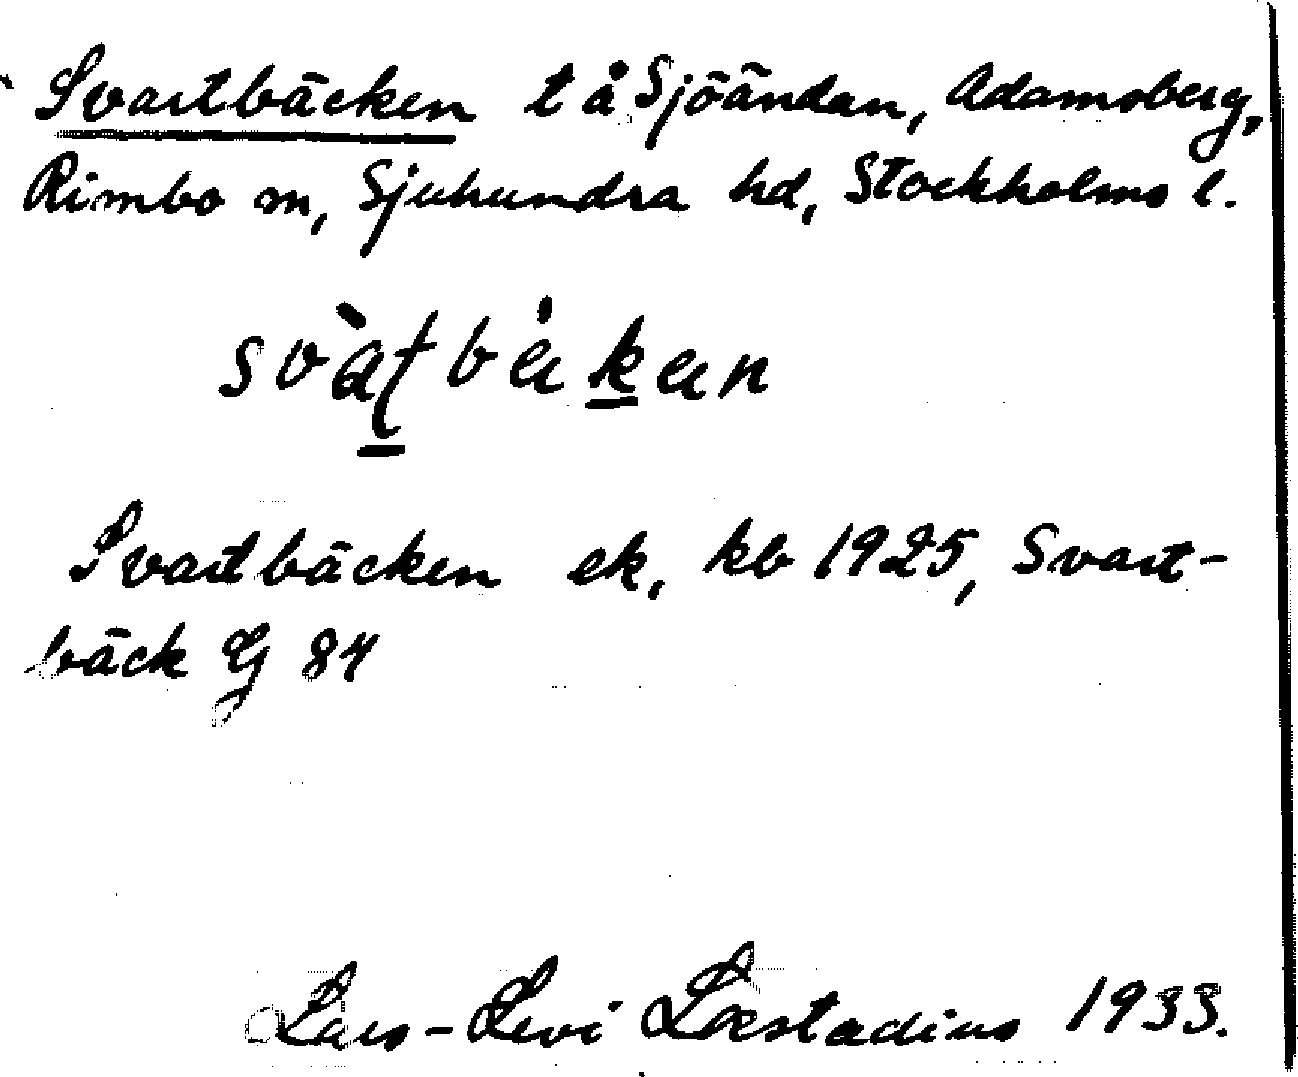 Svartbäcken t å Sjöändan, Adamsberg,
Rimbo sn, Sjuhundra hd, Stockholms l.
Svartbäcken ek, kb 1925, Svart-
bäck GJ 84
Lars-Levi Læstadius 1933.